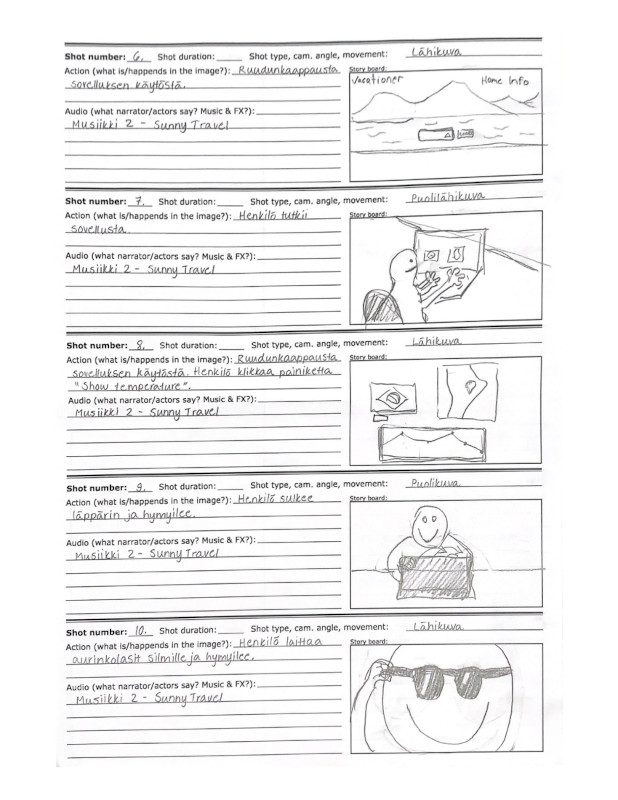 Shot number: 6. Shot duration:_____ Shot type, cam. angle, movement: Lähikuva
Action (what is/happends in the image?): Ruudunkaappausta
sovelluksen käytöstä.
Audio (what narrator/actors say? Music & FX?):
Musiikki 2 - Sunny Travel
Story board:
Vacationer Home Info
Shot number: 7. Shot duration:_____ Shot type, cam. angle, movement: Puolilähikuva
Action (what is/happends in the image?): Henkilö tutkii
sovellusta
Audio (what narrator/actors say? Music & FX?):
Musiikki 2 - Sunny Travel
Story board:
Shot number: 8. Shot duration:_____ Shot type, cam. angle, movement: Lähikuva
Action (what is/happends in the image?): Ruudunkaappausta
sovelluksen käytöstä. Henkilö klikkaa painiketta
"Show temperature".
Audio (what narrator/actors say? Music & FX?):
Musiikki 2 - Sunny Travel
Story board:
Shot number: 9. Shot duration:_____ Shot type, cam. angle, movement: Puolikuva
Action (what is/happends in the image?): Henkilö sulkee
läppärin ja hymyilee.
Audio (what narrator/actors say? Music & FX?):
Musiikki 2 - Sunny Travel
Story board:
Shot number: 10. Shot duration:_____ Shot type, cam. angle, movement: Lähikuva
Action (what is/happends in the image?): Henkilö laittaa
aurinkolasit silmille ja hymyilee.
Audio (what narrator/actors say? Music & FX?):
Musiikki 2 - Sunny Travel
Story board: